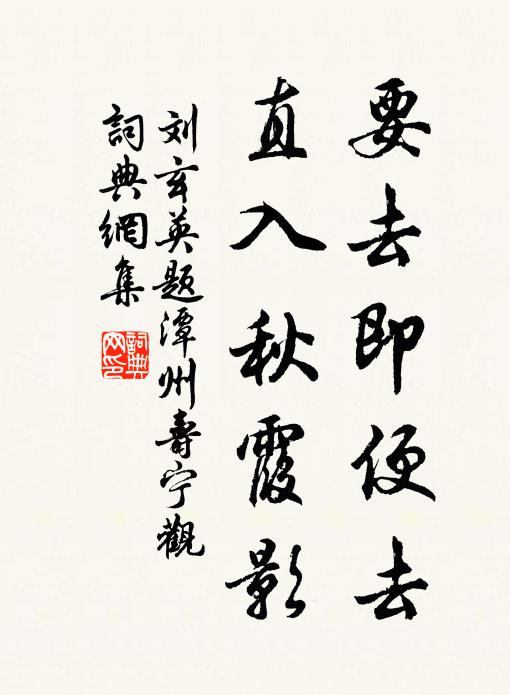 要去即便去
直入秋霞影
刘玄英题潭州寿宁觀
詞典網集
詞典网印